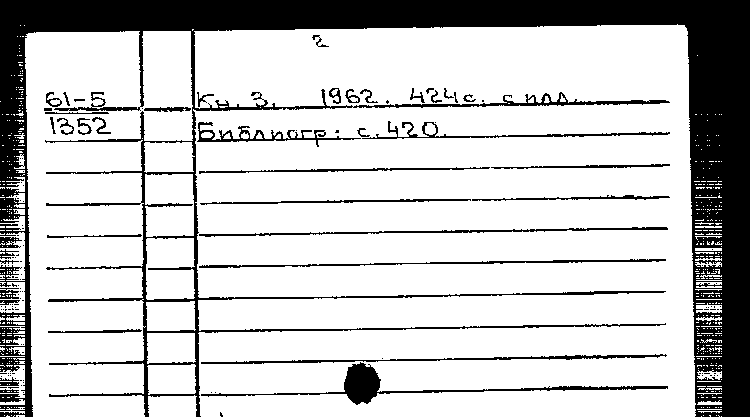 2
61-5 Кн. 3. 1962. 424с. с илл.
1352 Библиогр: с. 420.